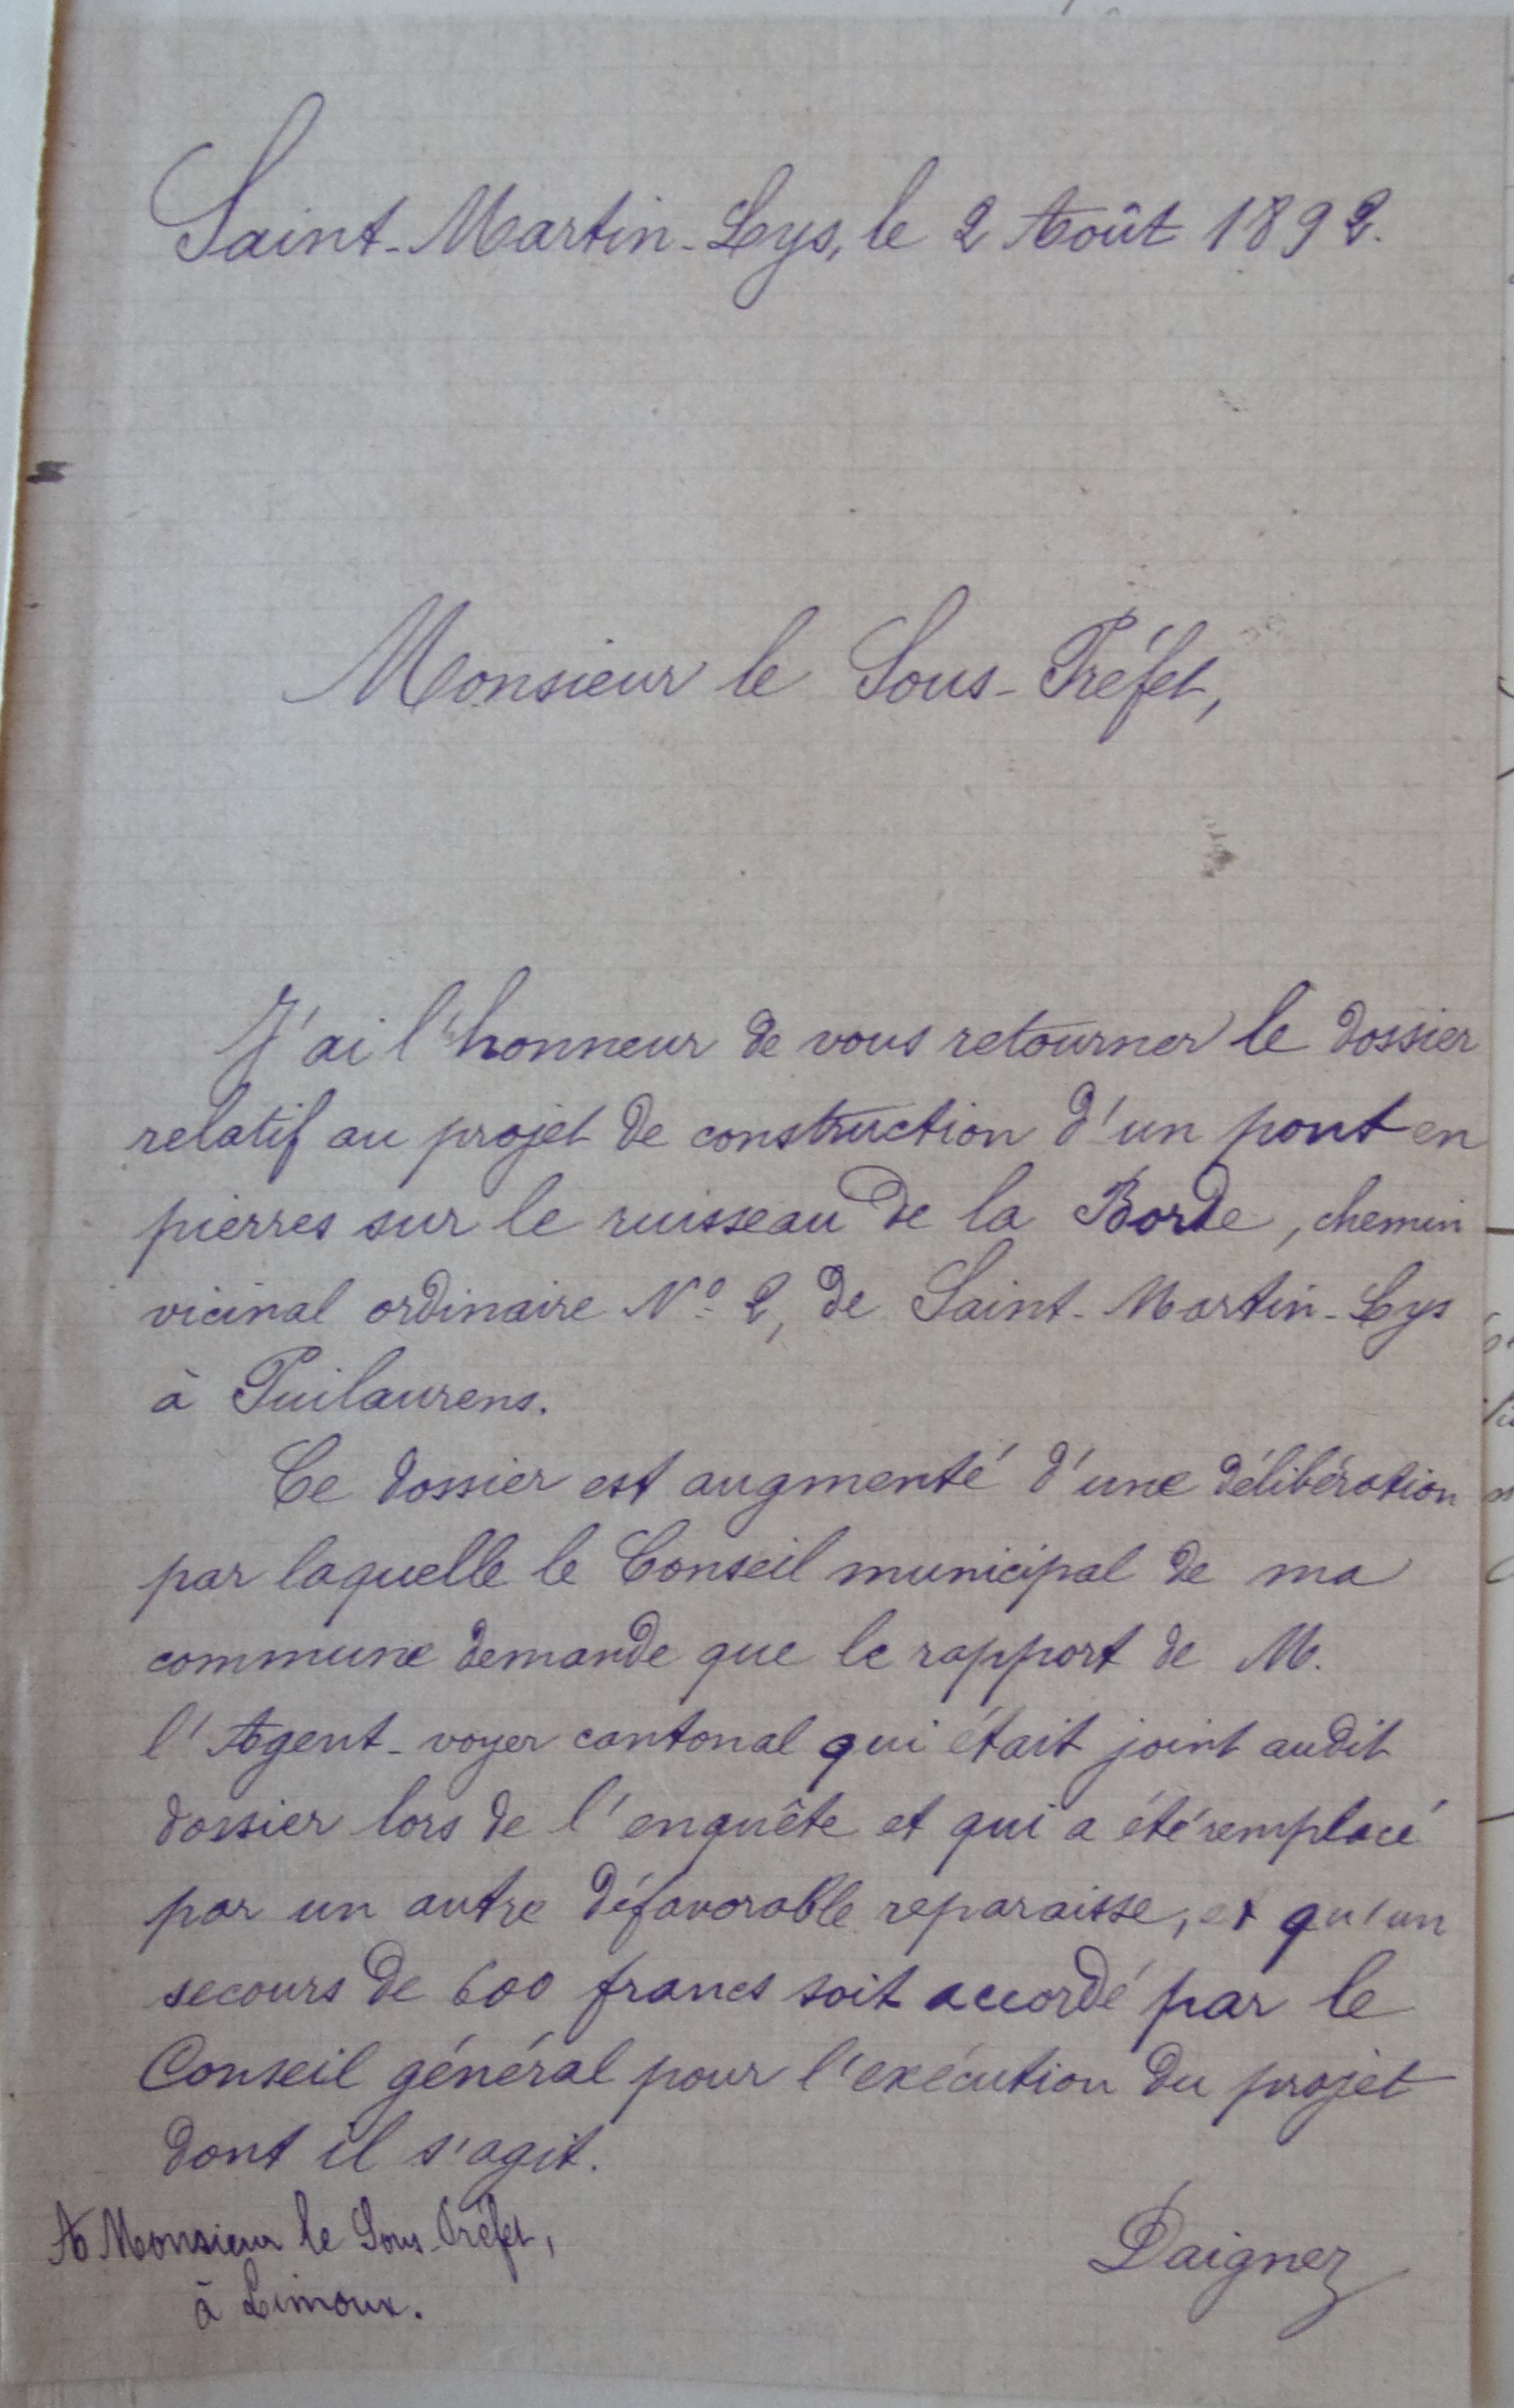 Saint-Martin-Lys, le 2 Août 1892.
Monsieur le Sous-Préfet,
J'ai l'honneur de vous retourner le dossier
relatif au projet de construction d'un pont en
pierres sur le ruisseau de la Borde, chemin
vicinal ordinaire Nº 2, de Saint-Martin-Lys
à Puilaurens.
Ce dossier est augmenté d'une délibération
par laquelle le Conseil municipal de ma
commune demande que le rapport de M.
l'Agent-voyer cantonal qui était joint audit
dossier lors de l'enquête et qui a été remplacé
par un autre défavorable reparaisse, et qu'un
secours de 600 francs soit accordé par le
Conseil général pour l'exécution du projet
dont il s'agit.
A Monsieur le Sous-Préfet,
à Limoux.
Daignez